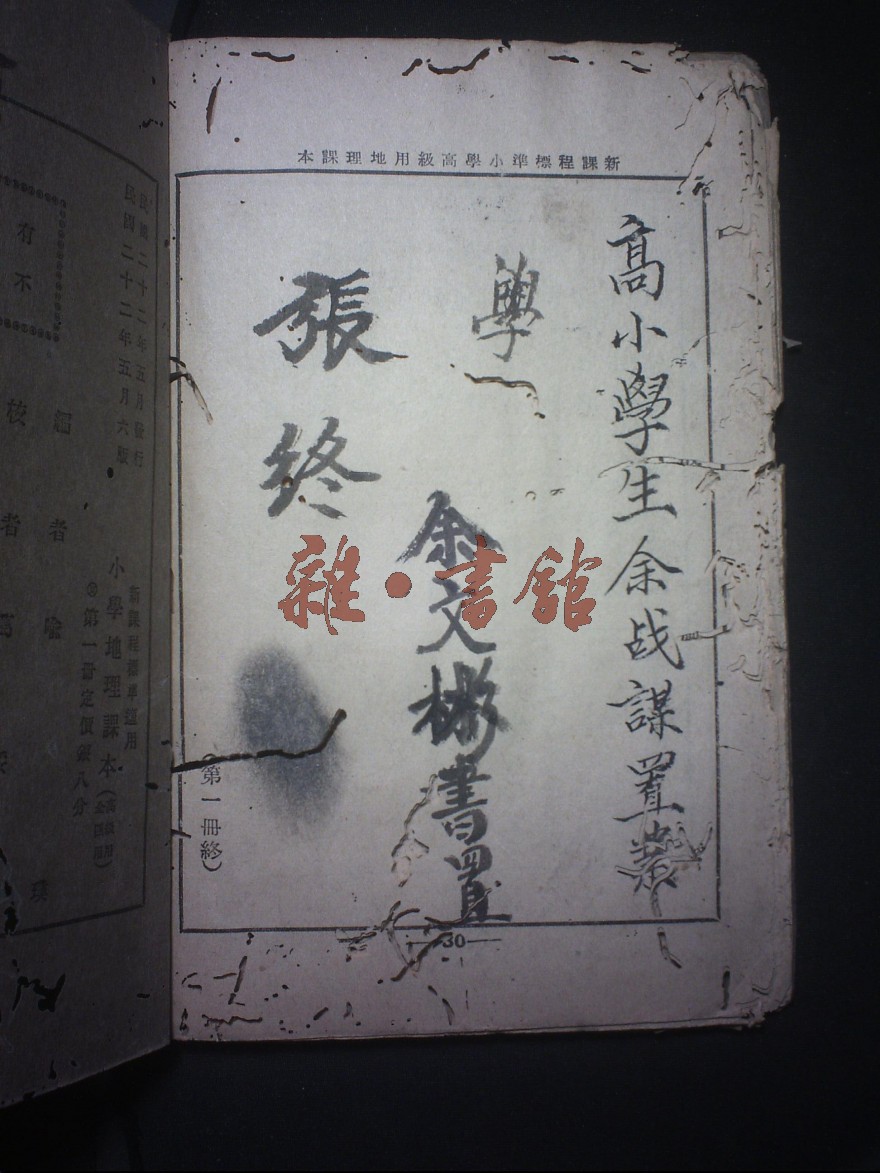 新課程標準小學高級用地理課本
高小學生余战謀置業
學
余文彬書置
張終
(第一冊終)
30
雜·書館
新課程標準適用
小學地理課本
第一冊定價銀八分
民國二十二年五月發行
民國二十二年五月六版
編者
核者
有不